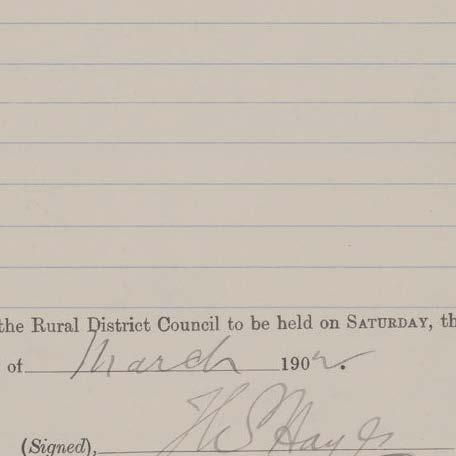 the Rural District Council to be held on SATURDAY, th
of March 1902.
(Signed),